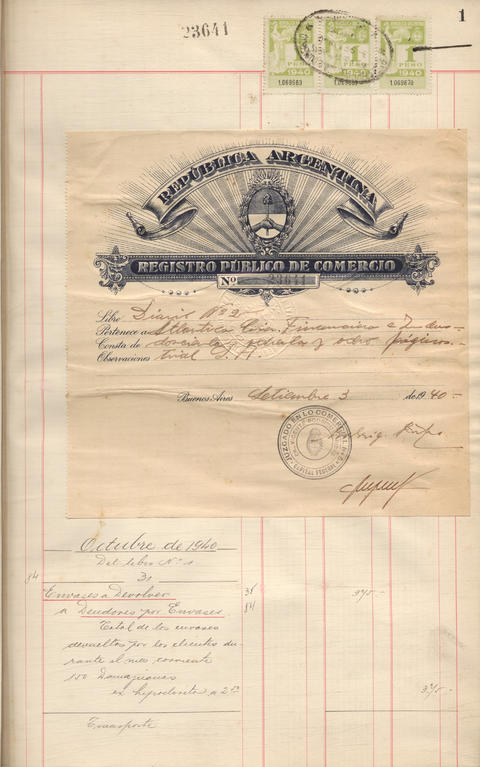 1
23641
1 PESO 1940
1940
1 PESO 1940
1.069669
1.069670
REPÚBLICA ARGENTINA
REGISTRO PÚBLICO DE COMERCIO
Nº 23641
Libro Diario Nº 2
Pertenece a Atlantica Cia. Financiera e Indus-
Consta de doscientas y ochenta y ocho páginas
Observaciones trial S.A.
Buenos Aires Setiembre 3 de 1940-
JUZGADO EN LO COMERCIAL
CAPITAL FEDERAL
Octubre de 1940
Del libro Nº 1
31
84 Envases a Devolver 31 375-
a Deudores por Envases 84
Total de los envases
devueltos por los clientes du-
rante el mes corriente
150 Damajuanas
a 2.50 375-
Transporte